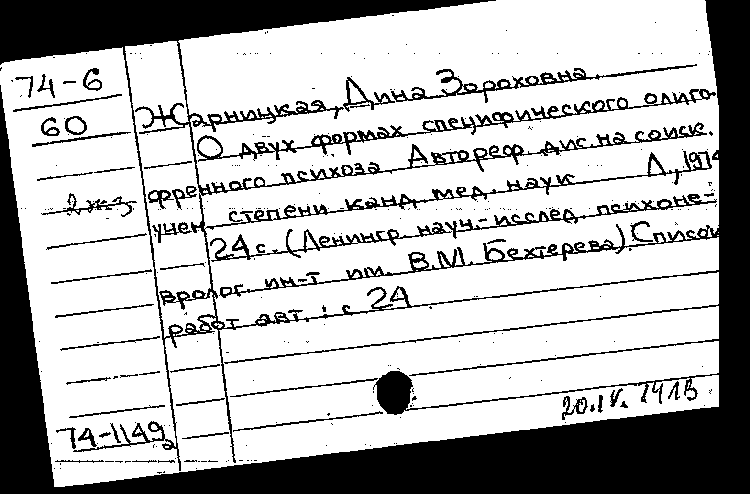 74-6
60
Жарницкая, Дина Зороховна.
О двух формах специфического олиго-
френного психоза. Автореф. дис. на соиск.
2 экз
учен. степени канд. мед. наук Л., 1974
24 с. (Ленингр. науч.-исслед. психоне-
вролог. ин-т им. В.М. Бехтерева). Список
работ авт.: с 24
74-1149
20.IV.